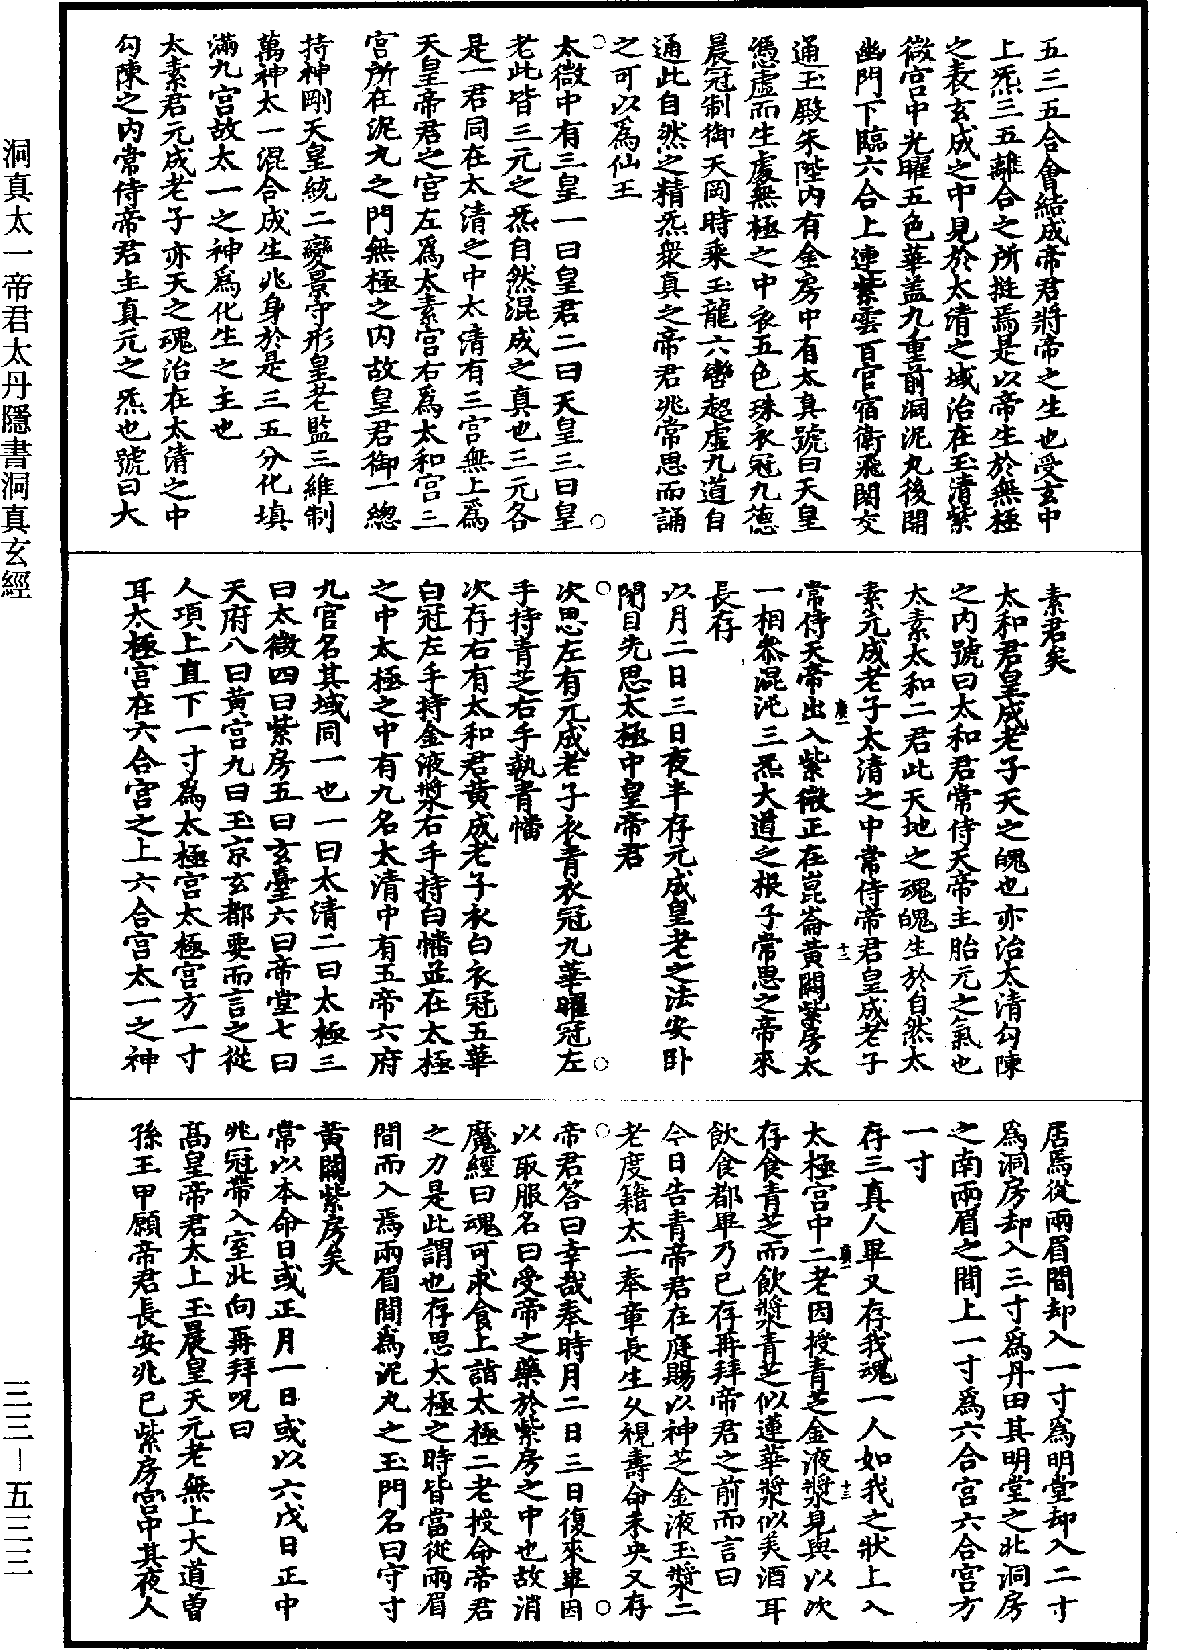 五三五合會結成帝君將帝之生也受玄中
上炁三五離合之所挺焉是以帝生於無極
之表玄成之中見於太清之域治在玉清紫
微宮中光曜五色華蓋九重前洞泥丸後開
幽門下臨六合上連紫雲百官宿衛飛閣交
通玉殿朱陛內有金房中有太真號曰天皇
憑虛而生處無極之中衣五色珠衣冠九德
晨冠制御天岡時乘玉龍六轡超虛九道自
通此自然之精炁衆真之帝君兆常思而誦
之可以為仙王
太微中有三皇一曰皇君二曰天皇三曰皇
老此皆三元之炁自然混成之真也三元各
是一君同在太清之中太清有三宮無上為
天皇帝君之宮左為太素宮右為太和宮三
宮所在泥丸之門無極之內故皇君御一總
持神剛天皇統二變景守形皇老監三維制
萬神太一混合成生兆身於是三五分化填
滿九宮故太一之神為化生之主也
太素君元成老子亦天之魂治在太清之中
勾陳之內常侍帝君主真元之炁也號曰大
素君矣
太和君皇成老子天之魄也亦治太清勾陳
之內號曰太和君常侍天帝主胎元之氣也
太素太和二君此天地之魂魄生於自然太
素元成老子太清之中常侍帝君皇成老子
常侍天帝出入紫微正在崑崙黃闕紫房太
一相叅混沌三炁大道之根子常思之帝來
長存
以月二日三日夜半存元成皇老之法安卧
閉目先思太極中皇帝君
次思左有元成老子衣青衣冠九華曜冠左
手持青芝右手執青幡
次存右有太和君黃成老子衣白衣冠五華
白冠左手持金液漿右手持白幡並在太極
之中太極之中有九名太清中有五帝六府
九官名其域同一也一曰太清二曰太極三
曰太微四曰紫房五曰玄臺六曰帝堂七曰
天府八曰黃宮九曰玉京玄都要而言之從
人項上直下一寸為太極宮太極宮方一寸
耳太極宮在六合宮之上六合宮太一之神
居焉從兩眉間却入一寸為明堂却入二寸
為洞房却入三寸為丹田其明堂之北洞房
之南兩眉之間上一寸為六合宮六合宮方
一寸
存三真人畢又存我魂一人如我之狀上入
太極宮中二老因授青芝金液漿見與以次
存食青芝而飲漿青芝似蓮華漿似美酒耳
飲食都畢乃已存再拜帝君之前而言曰
今日告青帝君在庭賜以神芝金液玉漿二
老度籍太一奉章長生久視壽命未央又存
帝君答曰幸哉奉時月二日三日復來畢因
以取服名曰受帝之藥於紫房之中也故消
魔經曰魂可求食上詣太極二老授命帝君
之力是此謂也存思太極之時皆當從兩眉
間而入焉兩眉間為泥丸之玉門名曰守寸
黃闕紫房矣
常以本命日或正月一日或以六戊日正中
兆冠帶入室北向再拜呪曰
高皇帝君太上玉晨皇天元老無上大道曾
孫王甲願帝君長安兆已紫房宮中其夜人
洞真太一帝君太丹隱書洞真玄經
三三－五三三